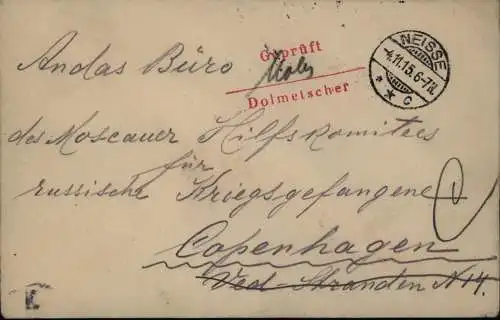 Geprüft
Dolmetscher
NEISSE
4.11.15.6-7N.
* * c
An das Büro
des Moscauer Hilfskomitees
für
russische Kriegsgefangene
Copenhagen
Ved Stranden N 14.